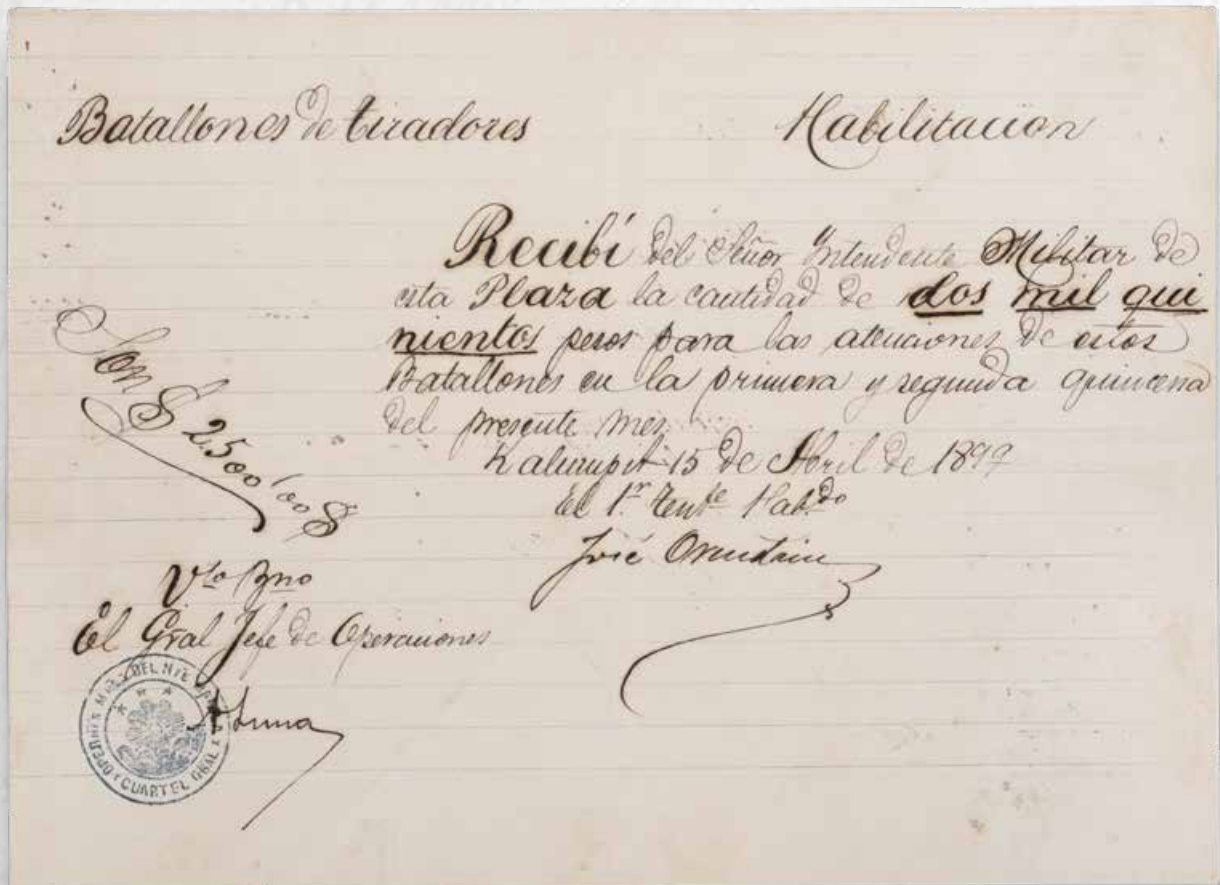 Batallones de tiradores
Habilitacion
Recibí del Señor Intendente Militar de
esta Plaza la cantidad de dos mil qui
nientos pesos para las atenciones de estos
Batallones en la primera y segunda quincena
del presente mes
Kalumpit 15 de Abril de 1899
El 1er Tente Habdo
José
Son $ 2.500'00 $
Vto Bno
El Gral Jefe de Operaciones
A Luna
DEL NTE
Y CUARTEL GRAL